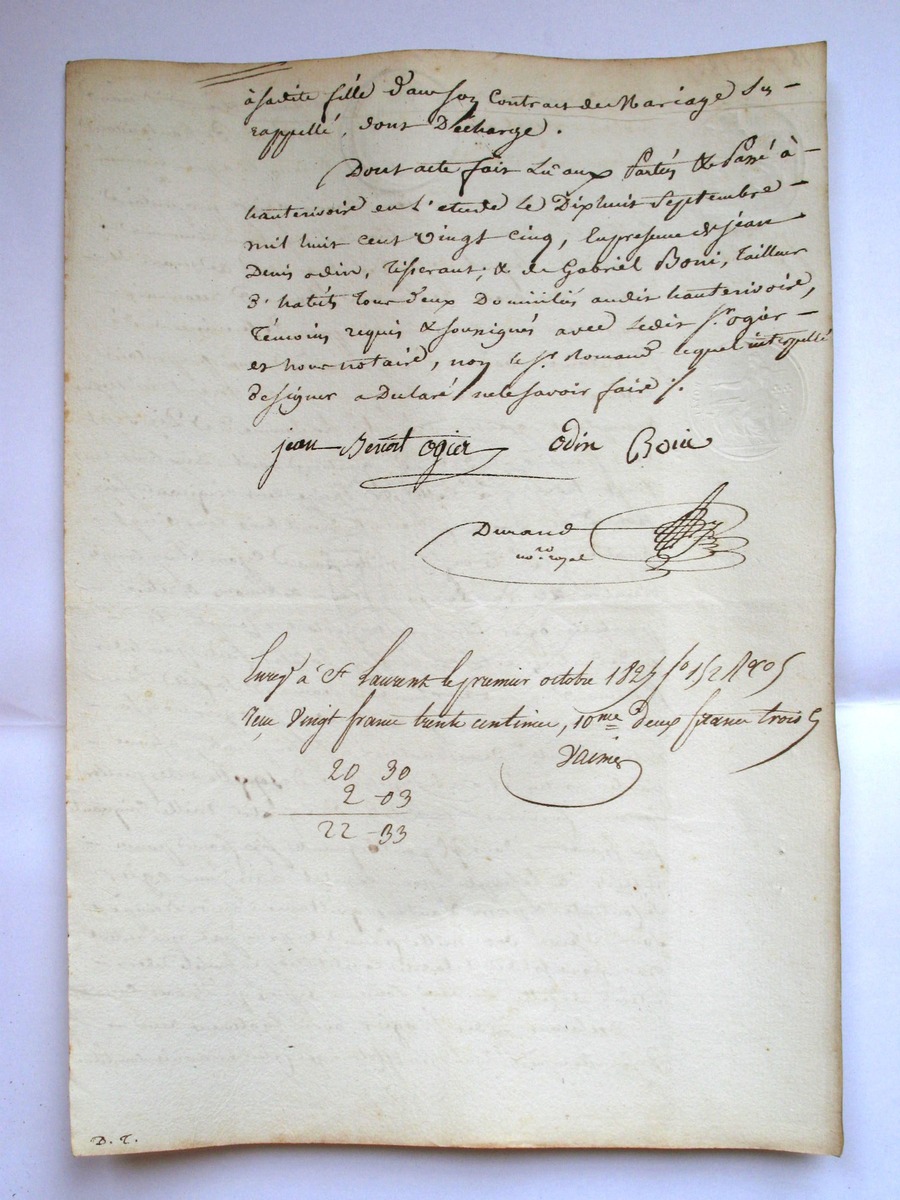 à sadite fille dans son Contrat de Mariage Sus
rappellé, dont Décharge.
Dont acte fait Lu aux Parties & Passé à
hauterivoire en l'etude le Dixhuit Septembre
mil huit cent vingt cinq, En presence de jean
Denis odin, Tisserant, & de Gabriel Boni, Tailleur
d'habits tous deux Domiciliés audit hauterivoire,
Témoins requis & soussignés avec Ledit Sr. ogier
et nous notaire, non le Sr. Romand lequel interpellé
de signer a Déclaré ne le savoir faire ./.
jean Benoit ogier odin Boni
Durand
nore. royal
Enregé à St Laurent le premier octobre 1825 fo 152 Ro
reçu vingt francs trente centimes, 10me deux francs trois c
20 30
2 -03
22 -33
D. T.